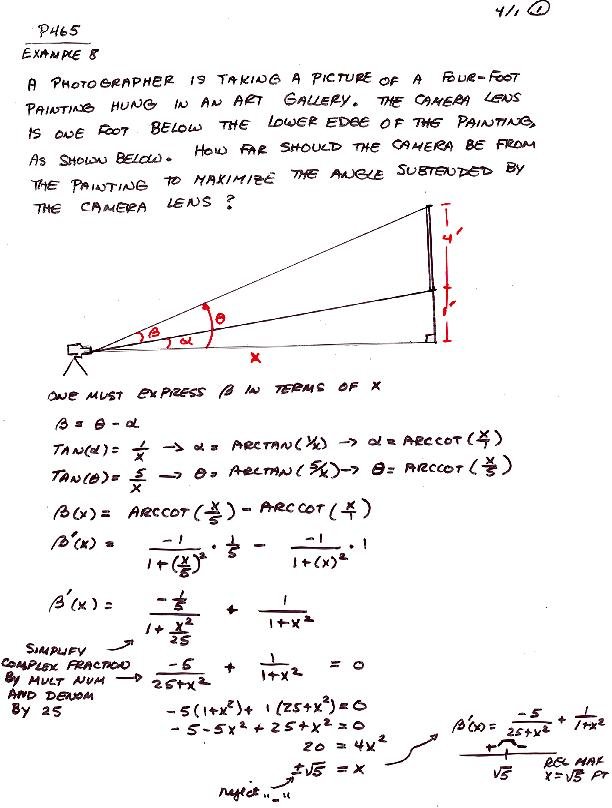 4/1 ①
P465
EXAMPLE 8
A PHOTOGRAPHER IS TAKING A PICTURE OF A FOUR-FOOT
PAINTING HUNG IN AN ART GALLERY. THE CAMERA LENS
IS ONE FOOT BELOW THE LOWER EDGE OF THE PAINTING,
AS SHOWN BELOW. HOW FAR SHOULD THE CAMERA BE FROM
THE PAINTING TO MAXIMIZE THE ANGLE SUBTENDED BY
THE CAMERA LENS?
4'
1'
β
α
θ
X
ONE MUST EXPRESS β IN TERMS OF X
β = θ - α
TAN(α) = 1/x → α = ARCTAN(1/x) → α = ARCCOT(x/1)
TAN(θ) = 5/x → θ = ARCTAN(5/x) → θ = ARCCOT(x/5)
β(x) = ARCCOT(x/5) - ARCCOT(x/1)
β'(x) = -1/(1+(x/5)²) · 1/5 - -1/(1+(x)²) · 1
β'(x) = (-1/5)/(1+x²/25) + 1/(1+x²)
SIMPLIFY
COMPLEX FRACTION
BY MULT NUM
AND DENOM
BY 25
→ -5/(25+x²) + 1/(1+x²) = 0
-5(1+x²) + 1(25+x²) = 0
-5 - 5x² + 25 + x² = 0
20 = 4x²
±√5 = x
reject "-"
β'(x) = -5/(25+x²) + 1/(1+x²)
+ -
√5
REL MAX
x = √5 PT